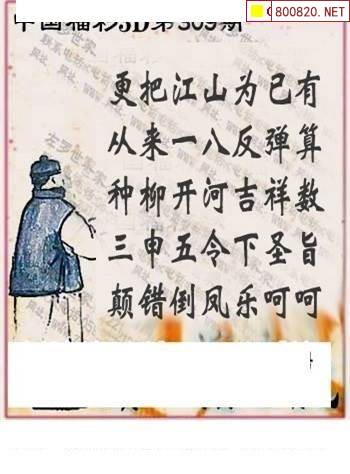 800820.NET
中国福彩3D第309期
更把江山为己有
从来一八反弹算
种柳开河吉祥数
三申五令下圣旨
颠错倒凤乐呵呵